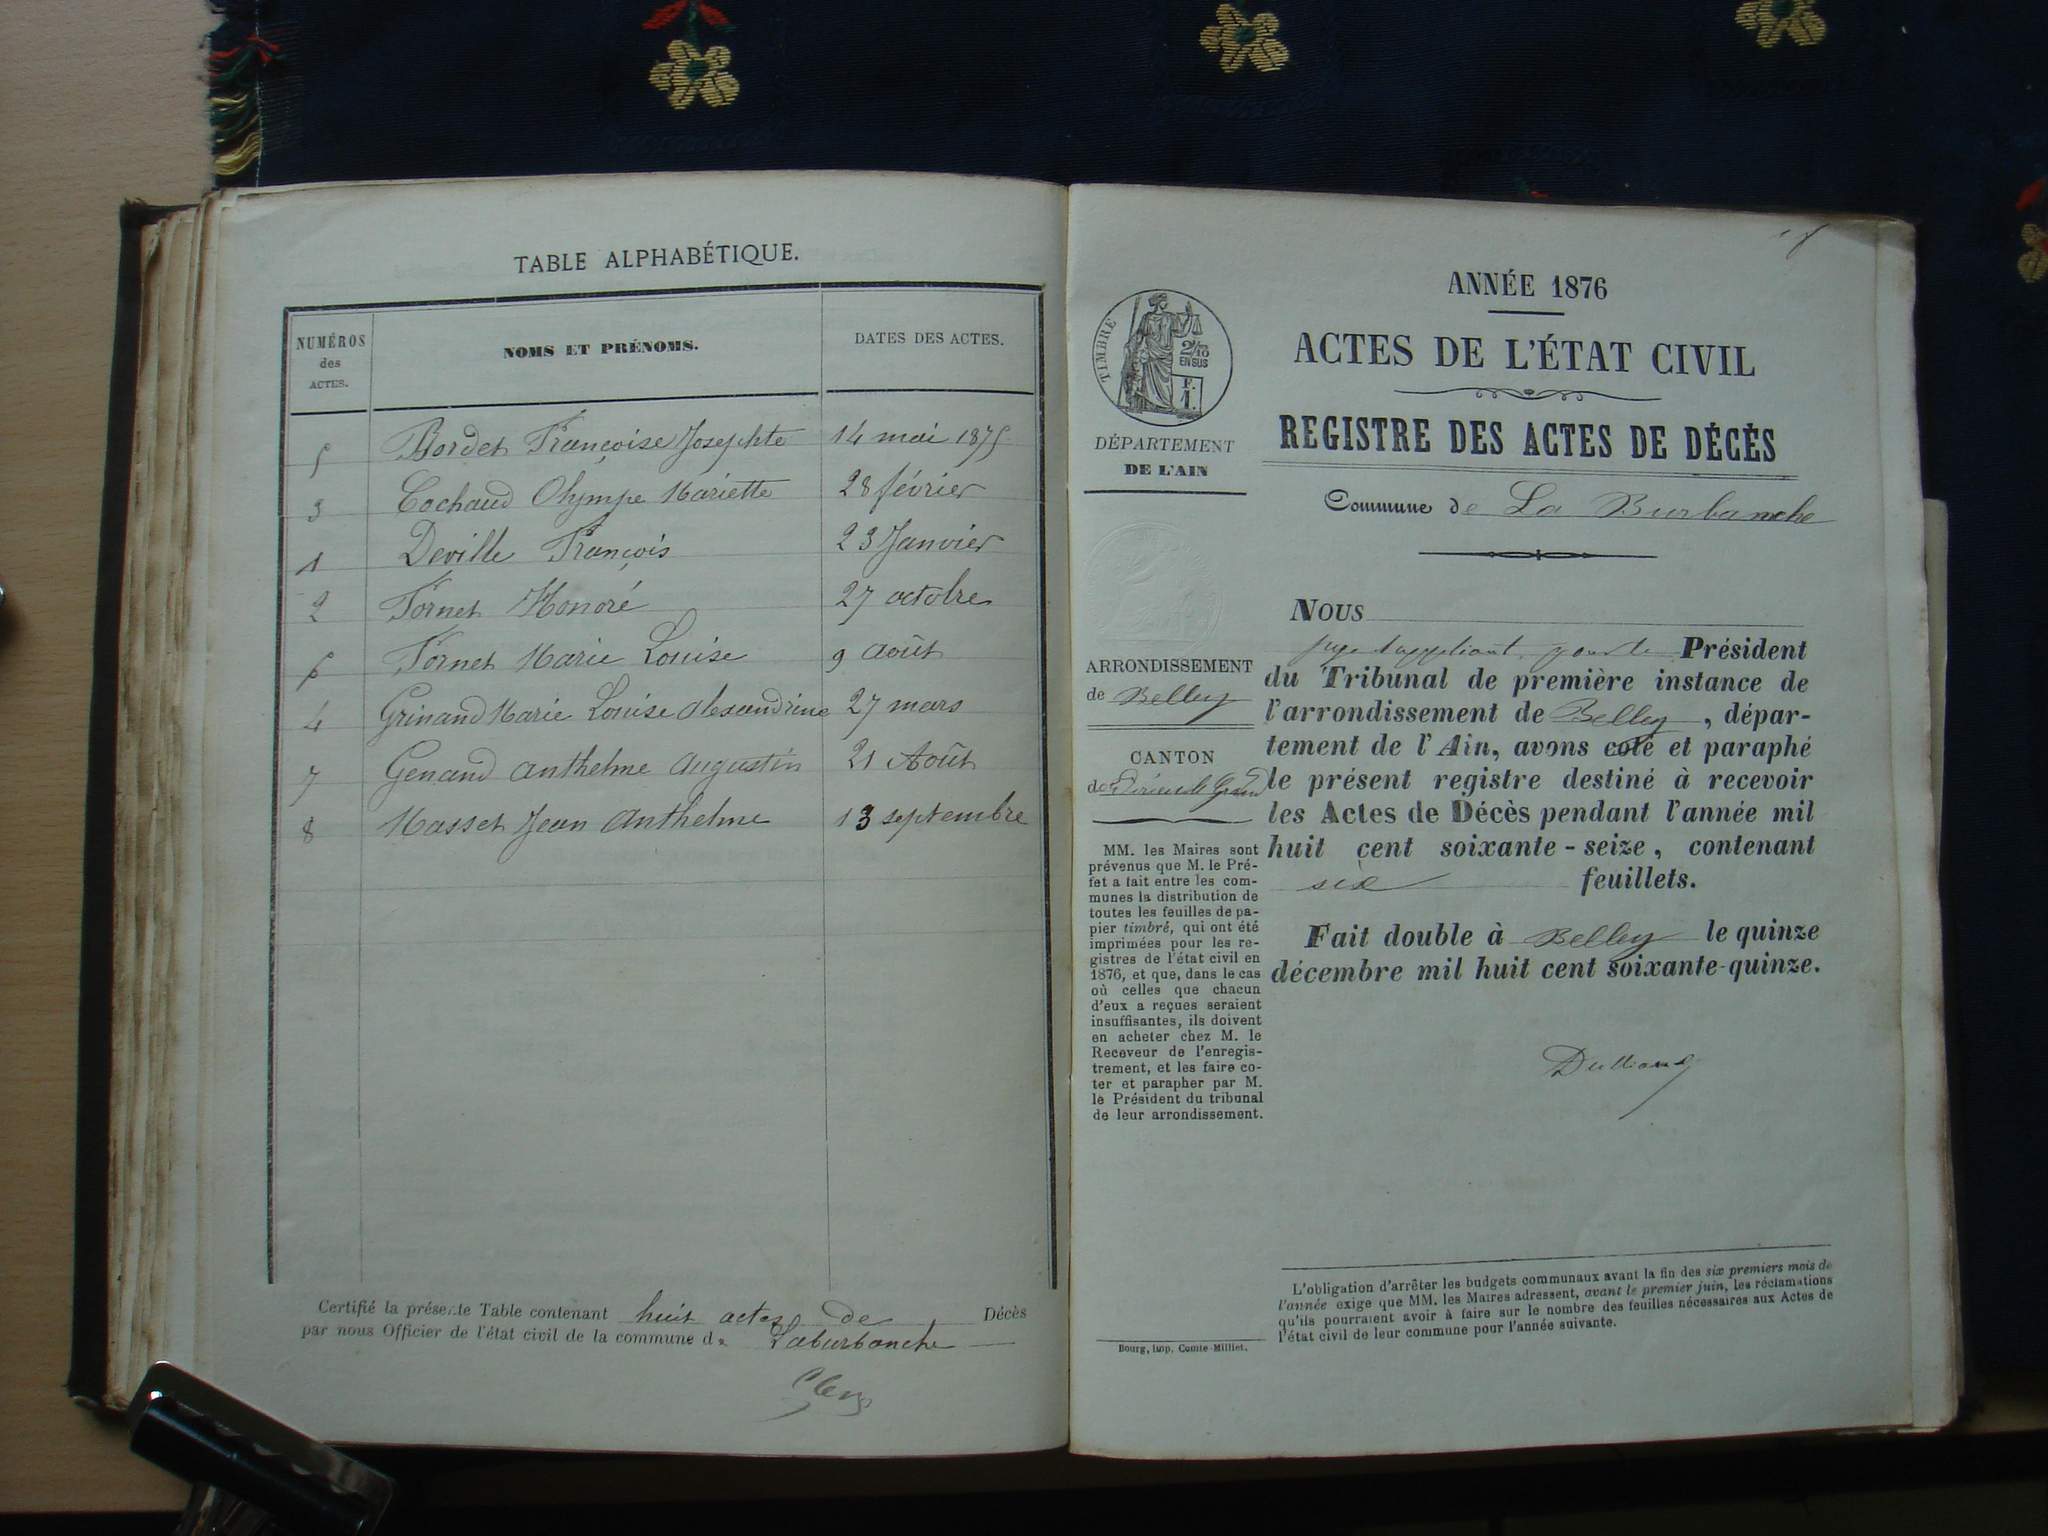 TABLE ALPHABÉTIQUE.
NUMÉROS des ACTES.
NOMS ET PRÉNOMS.
DATES DES ACTES.
5 Bordet Françoise Josephte 14 mai 1875
3 Cochaud Olympe Mariette 28 février
1 Deville François 23 Janvier
2 Fornet Honoré 27 octobre
6 Fornet Marie Louise 9 août
4 Grinand Marie Louise Alexandrine 27 mars
7 Genand Anthelme Augustin 21 Août
8 Masset Jean Anthelme 13 septembre
Certifié la présente Table contenant huit actes de Décès
par nous Officier de l'état civil de la commune de Laburbanche
ANNÉE 1876
ACTES DE L'ÉTAT CIVIL
REGISTRE DES ACTES DE DÉCÈS
Commune de La Burbanche
TIMBRE
2/10
EN SUS
F.
1.
DÉPARTEMENT
DE L'AIN
ARRONDISSEMENT
de Belley
CANTON
de Virieu le Grand
MM. les Maires sont
prévenus que M. le Pré-
fet a fait entre les com-
munes la distribution de
toutes les feuilles de pa-
pier timbré, qui ont été
imprimées pour les re-
gistres de l'état civil en
1876, et que, dans le cas
où celles que chacun
d'eux a reçues seraient
insuffisantes, ils doivent
en acheter chez M. le
Receveur de l'enregis-
trement, et les faire co-
ter et parapher par M.
le Président du tribunal
de leur arrondissement.
Bourg, imp. Comte-Milliet.
NOUS
juge suppléant pour le Président
du Tribunal de première instance de
l'arrondissement de Belley, dépar-
tement de l'Ain, avons coté et paraphé
le présent registre destiné à recevoir
les Actes de Décès pendant l'année mil
huit cent soixante-seize, contenant
six feuillets.
Fait double à Belley le quinze
décembre mil huit cent soixante-quinze.
L'obligation d'arrêter les budgets communaux avant la fin des six premiers mois de
l'année exige que MM. les Maires adressent, avant le premier juin, les réclamations
qu'ils pourraient avoir à faire sur le nombre des feuilles nécessaires aux Actes de
l'état civil de leur commune pour l'année suivante.